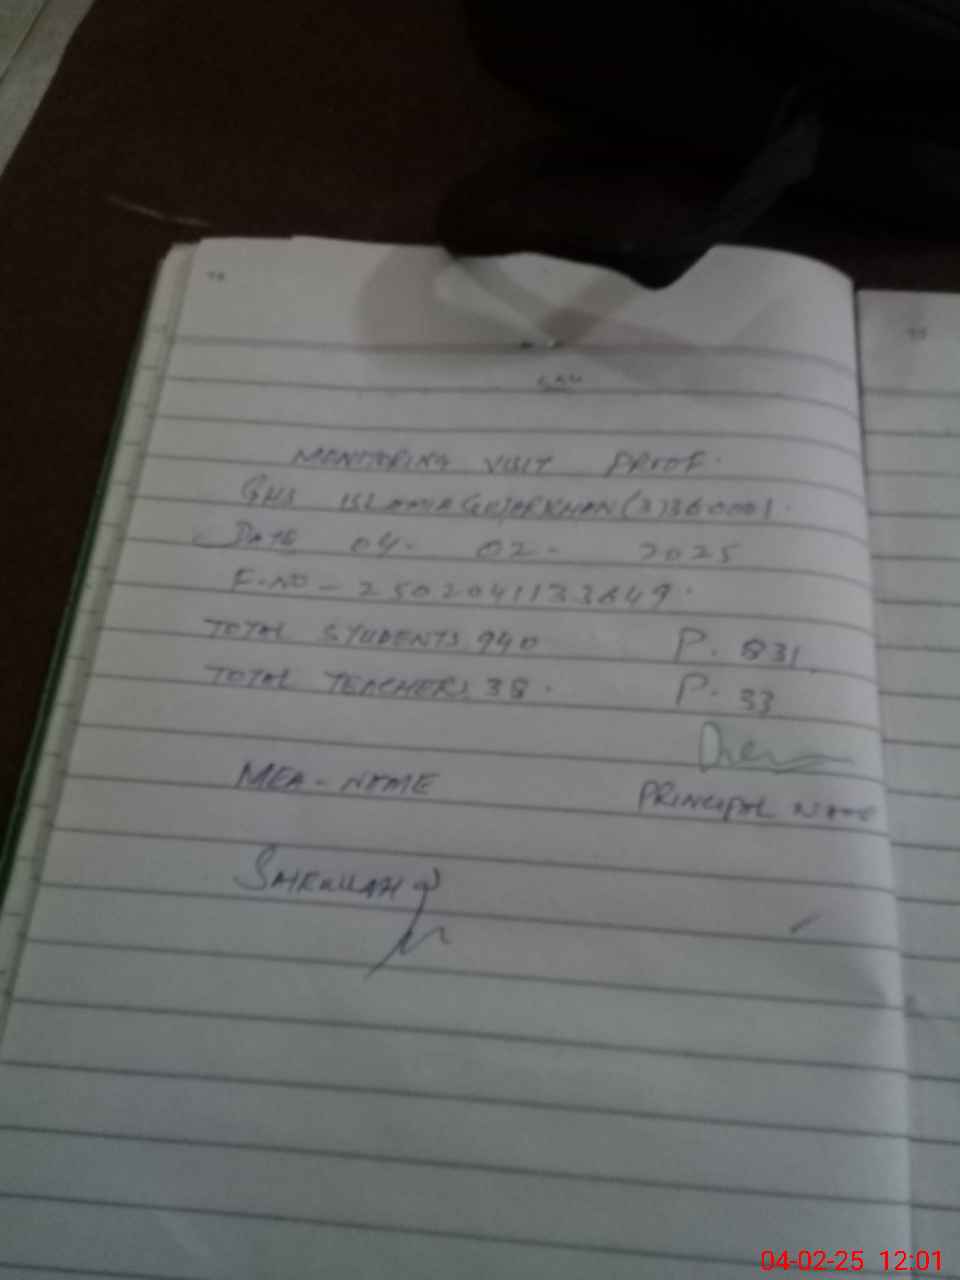 MONITORING VISIT PROOF.
GHS ISLAMIA GUJARKHAN (3)360001.
DATE 04. 02. 2025
F.NO - 2502041133849.
TOTAL STUDENTS 940 P. 831
TOTAL TEACHERS 38. P. 33
MEA - NAME PRINCIPAL NAME
04-02-25 12:01